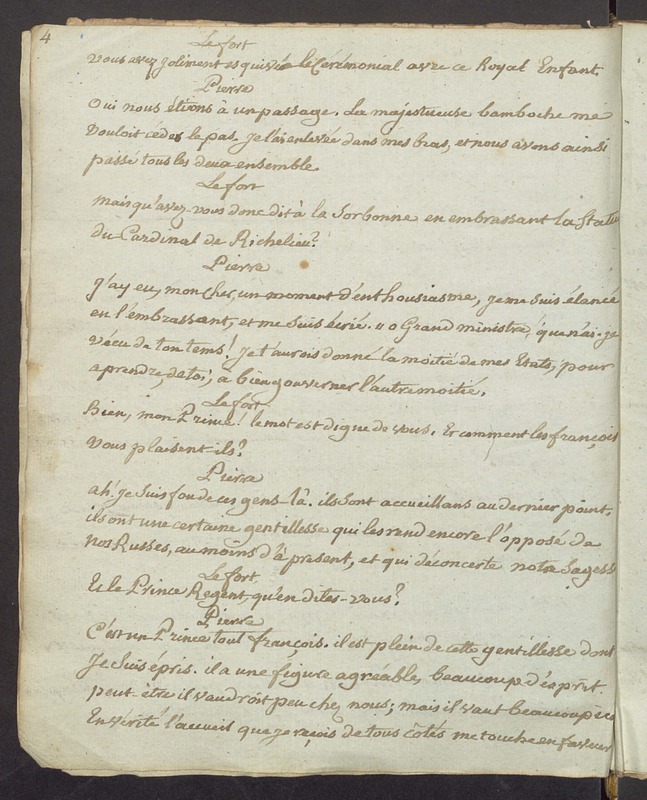 4
Lefort
Vous avez joliment esquivé le Cérémonial avec ce Royal Enfant.
Pierre
Oui nous étions à un passage. La majestueuse bamboche me
vouloit céder le pas. Je l'ai enlevée dans mes bras, et nous avons ainsi
passé tous les deux ensemble
Lefort
mais qu'avez-vous donc dit à la Sorbonne en embrassant la Statue
du Cardinal de Richelieu?
Pierre
J'ay eu, mon cher, un moment d'enthousiasme, je me suis élancé
en l'embrassant, et me suis écrié. " o Grand ministre, que n'ai-je
vécu de ton tems! Je t'aurois donné la moitié de mes Etats, pour
aprendre, de toi, a bien gouverner l'autre moitié.
Lefort
Bien, mon Prince! le mot est digne de vous. Et comment les françois
vous plaisent-ils?
Pierre
ah! je suis fou de ces gens-là. ils sont accueillans au dernier point.
ils ont une certaine gentillesse qui les rend encore l'opposé de
nos Russes, au moins d'à present, et qui déconcerte notre Sagess
Lefort
Et le Prince Regent, qu'en dites-vous?
Pierre
C'est un Prince tout françois. il est plein de cette gentillesse dont
Je suis épris. il a une figure agréable, beaucoup d'esprit.
peut-être il vaudroit peu chez nous; mais il vaut beaucoup ici
En vérité l'accueil que je reçois de tous côtés me touche en faveur